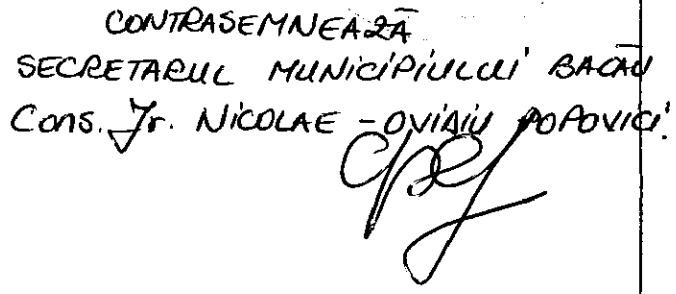 CONTRASEMNEAZĂ
SECRETARUL MUNICIPIULUI BACĂU
Cons. Jr. NICOLAE - OVIDIU POPOVICI